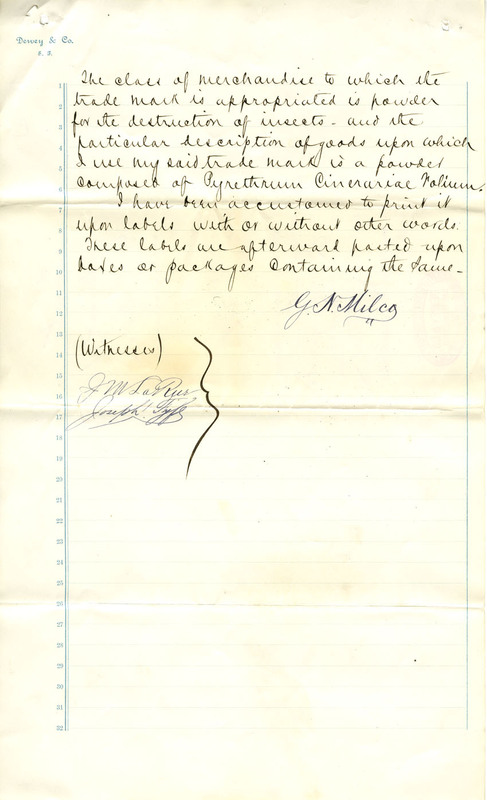 Dewey & Co.
S. F.
The class of merchandise to which the
trade mark is appropriated is powder
for the destruction of insects - and the
particular description of goods upon which
I use my said trade mark is a powder
composed of Pyrethrum Cinerariae Folium.
I have been accustomed to print it
upon labels with or without other words.
These labels are afterward pasted upon
boxes or packages containing the same -
G. N. Milco
(Witnesses)
J M LaRue
Joseph
1
2
3
4
5
6
7
8
9
10
11
12
13
14
15
16
17
18
19
20
21
22
23
24
25
26
27
28
29
30
31
32